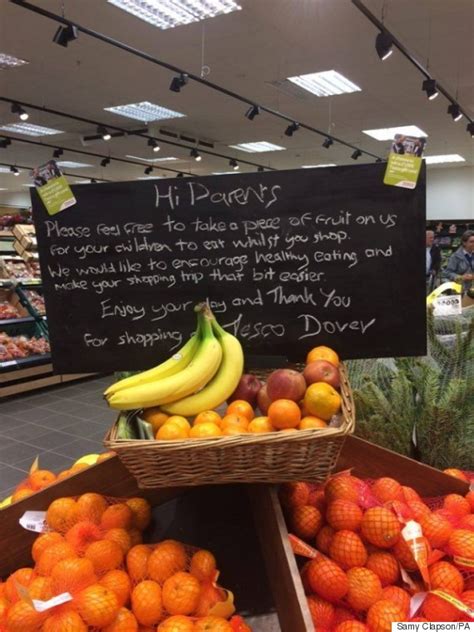 Hi Parents
Please feel free to take a piece of fruit on us
for your children to eat whilst you shop.
We would like to encourage healthy eating and
make your shopping trip that bit easier.
Enjoy your day and Thank You
for shopping Tesco Dover
Samy Clapson/PA